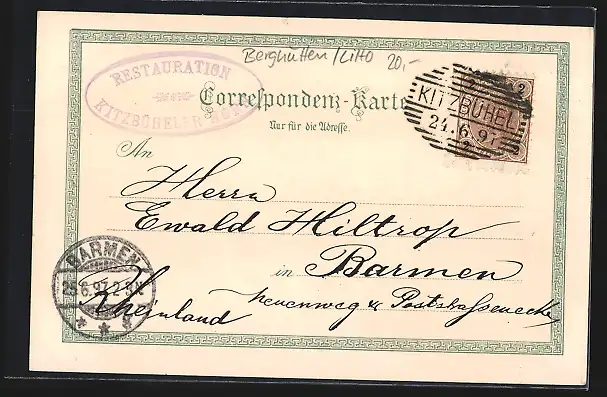 Berghütten/Litto 20,-
RESTAURATION
KITZBÜHELER
Correspondenz-Karte
Nur für die Adresse.
2
KITZBÜHEL
24.6.97
An
Herrn
Ewald Hiltrop
in Barmen
Neuenweg & Poststrassenecke
Rheinland
BARMEN
25.6.97.2